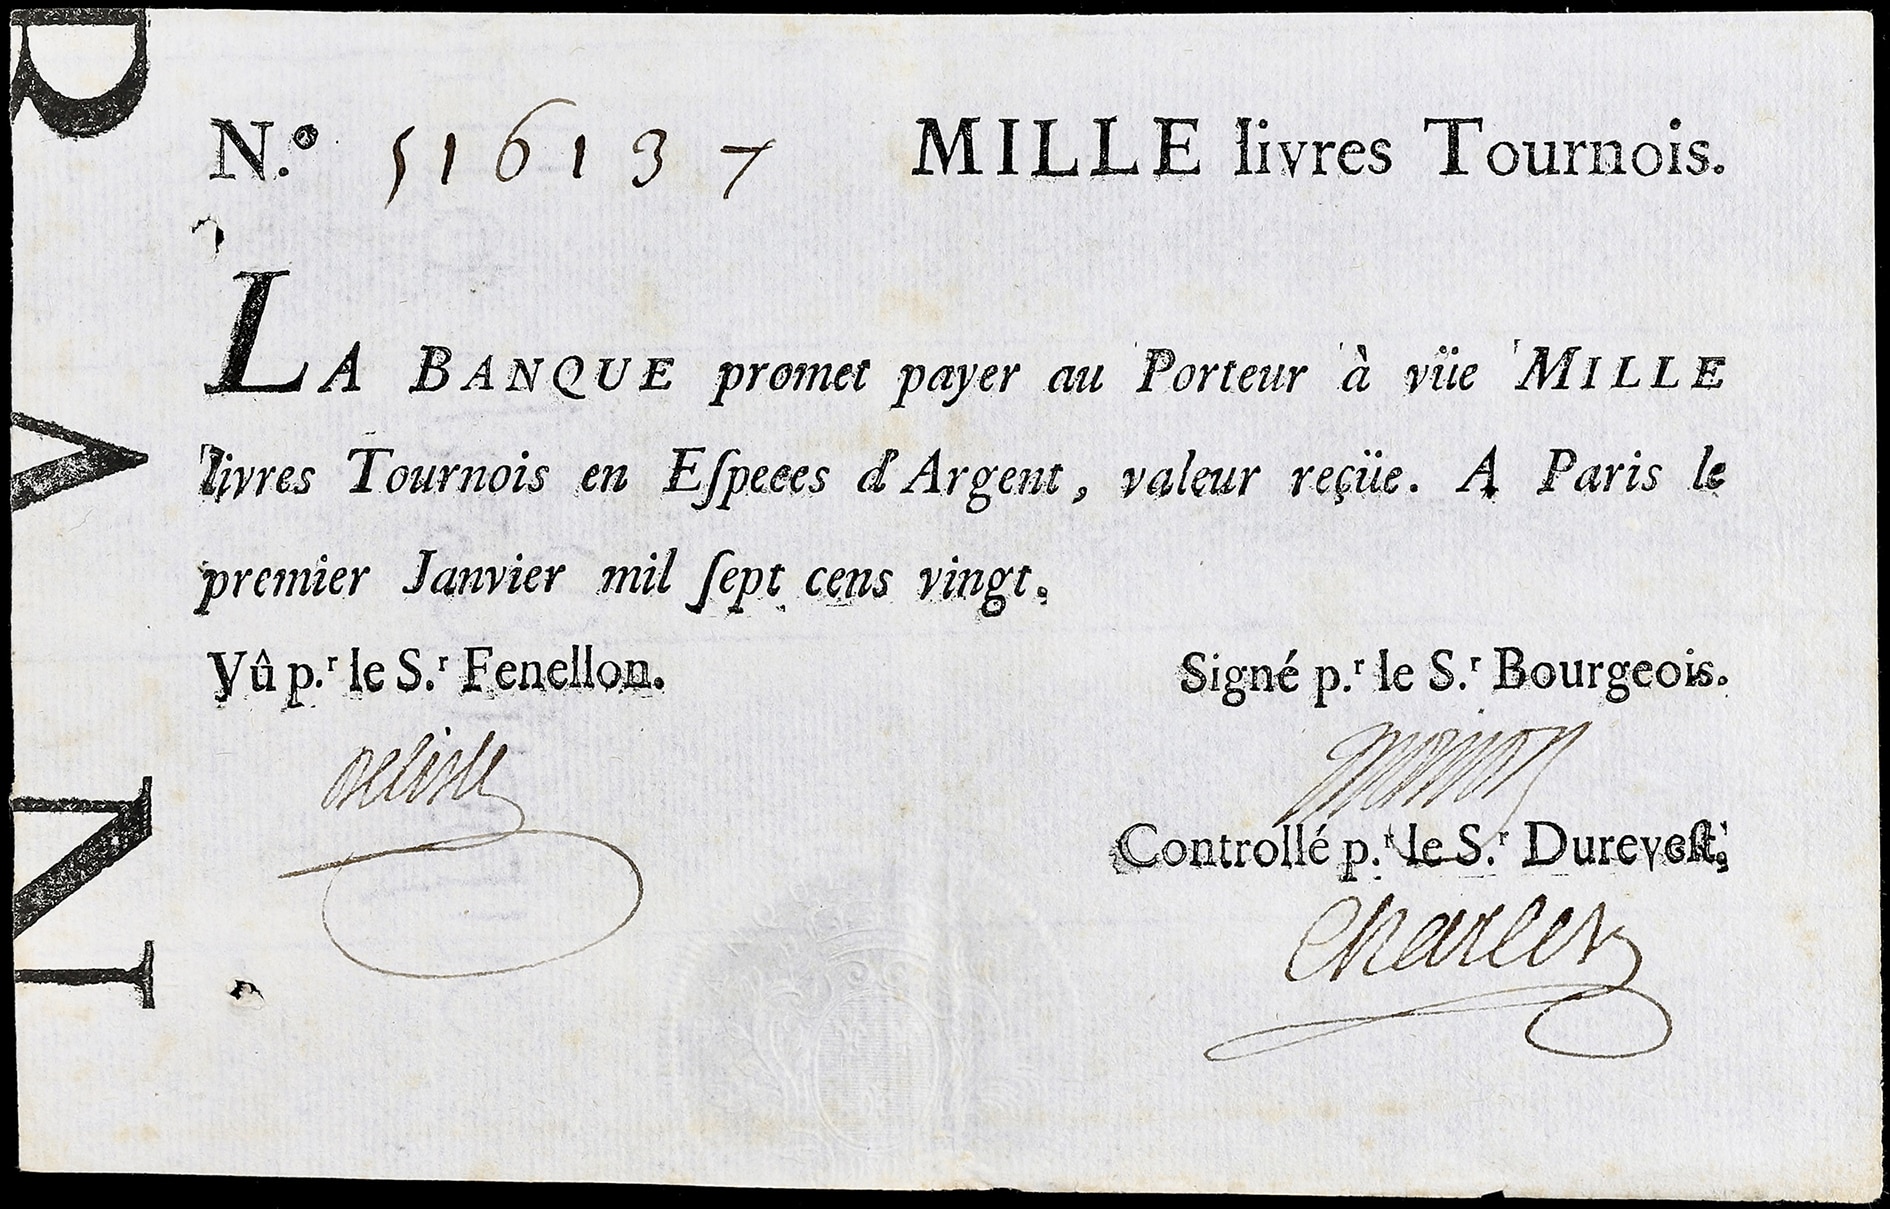 N.º 516137 MILLE livres Tournois.
LA BANQUE promet payer au Porteur à vüe MILLE
livres Tournois en Eſpeces d'Argent, valeur reçüe. A Paris le
premier Janvier mil ſept cens vingt.
Vû p.r le S.r Fenellon.
Signé p.r le S.r Bourgeois.
Delisle
Controllé p.r le S.r Dureveſt.